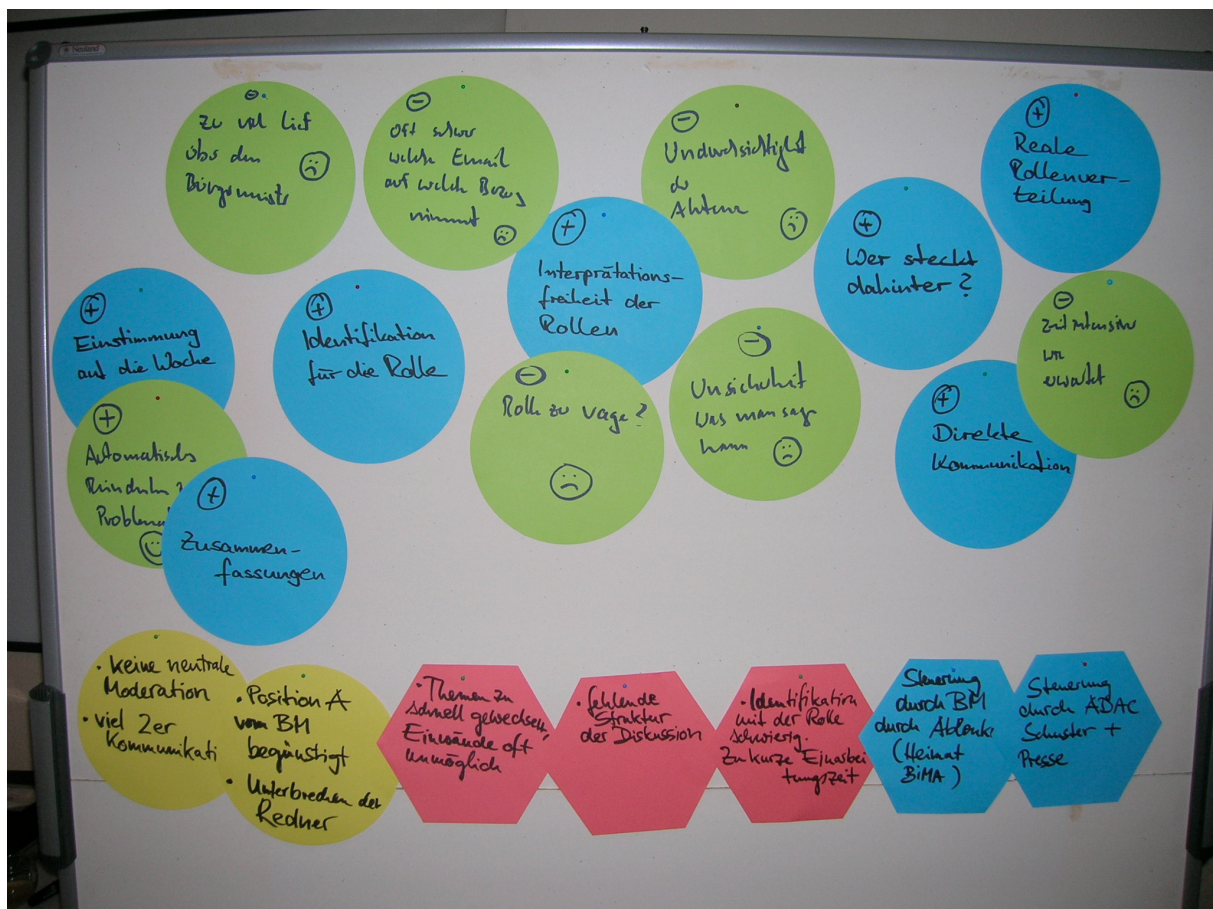 Neuland
zu viel lief
über den
Bürgermeister
Oft schwer
welche Email
auf welche Bezug
nimmt
Undurchsichtigkeit
der
Akteure
+
Reale
Rollenver-
teilung
+
Interprätations-
freiheit der
Rollen
+
Wer steckt
dahinter?
+
Einstimmung
auf die Woche
+
Identifikation
für die Rolle
-
Rolle zu vage?
-
Unsicherheit
was man sagen
kann
-
zeitintensiver
wie
erwartet
+
Direkte
Kommunikation
+
Automatisches
Proble
+
Zusammen-
fassungen
• keine neutrale
Moderation
• viel 2er
Kommunikati
• Position A
vom BM
begünstigt
• Unterbrechen der
Redner
• Themen zu
schnell gewechselt
Einwände oft
unmöglich
• fehlende
Struktur
der Diskussion
• Identifikation
mit der Rolle
schwierig.
Zu kurze Einarbei
tungszeit
Steuerung
durch BM
durch Ablenk
(Heimat
BiMA)
Steuerung
durch ADAC
Schuster +
Presse